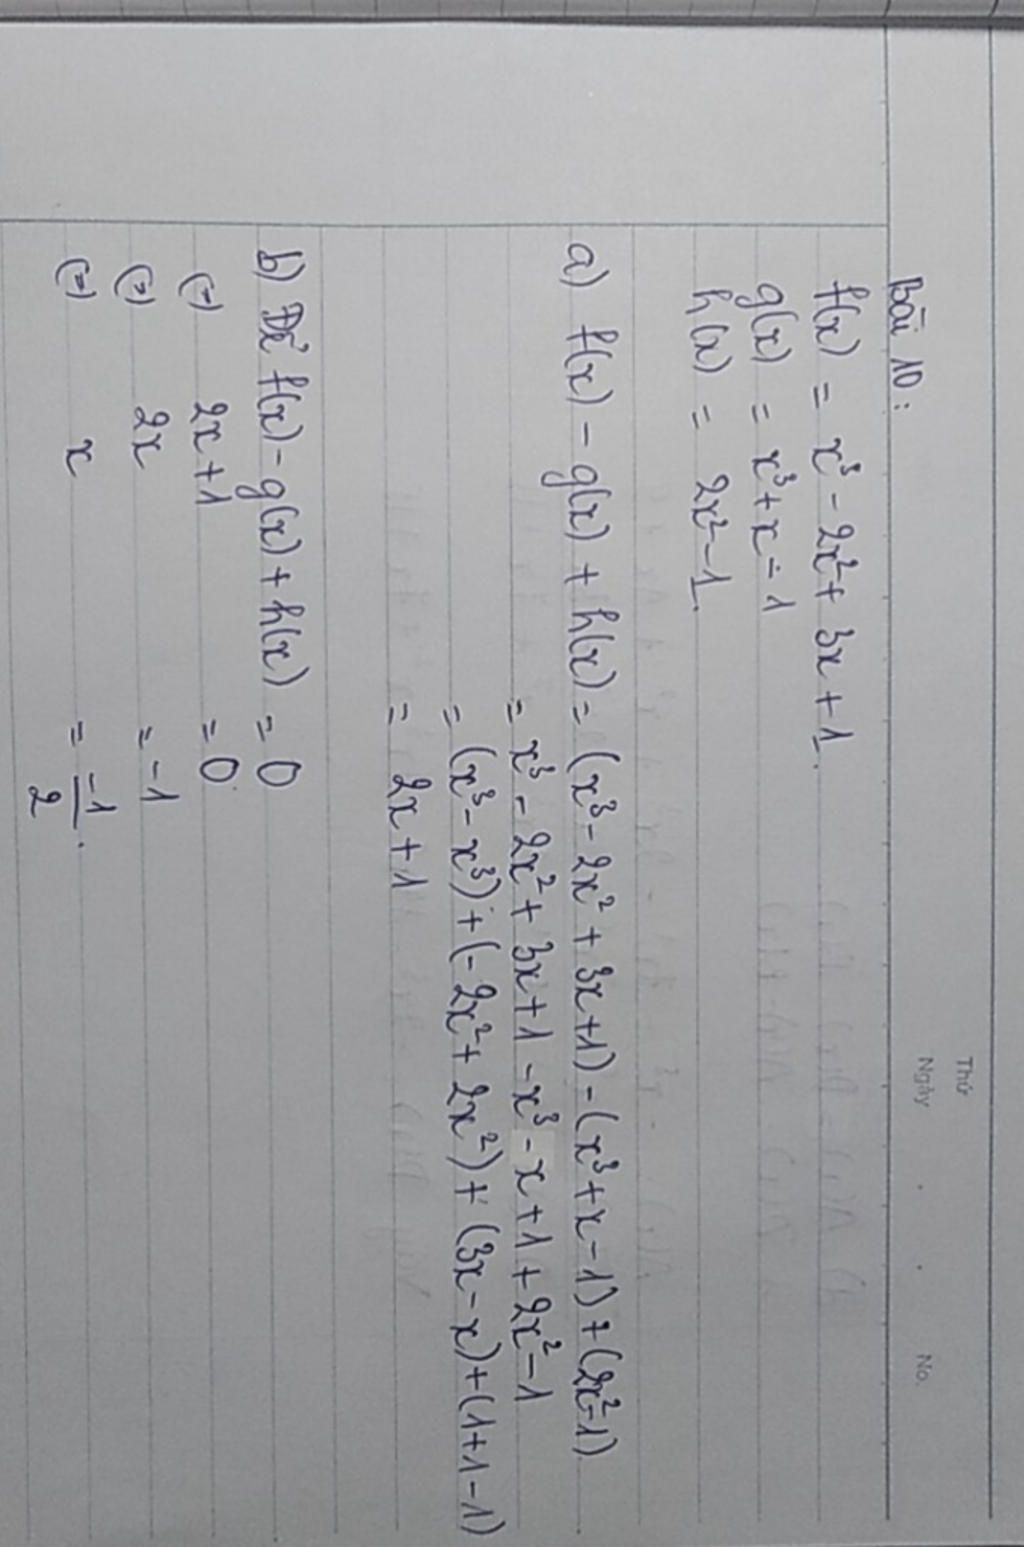 Thứ
Ngày . . No.
Bài 10:
f(x) = x³ - 2x² + 3x + 1.
g(x) = x³ + x - 1
h(x) = 2x² - 1.
a) f(x) - g(x) + h(x) = (x³ - 2x² + 3x + 1) - (x³ + x - 1) + (2x² - 1)
= x³ - 2x² + 3x + 1 - x³ - x + 1 + 2x² - 1
= (x³ - x³) + (-2x² + 2x²) + (3x - x) + (1 + 1 - 1)
= 2x + 1
b) Để f(x) - g(x) + h(x) = 0
(=) 2x + 1 = 0.
(=) 2x = -1
(=) x = -1/2.